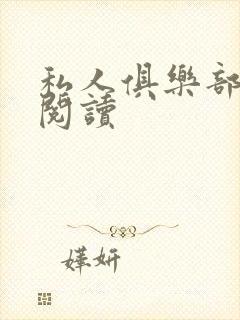 私人俱樂部
閱讀
嬅妍